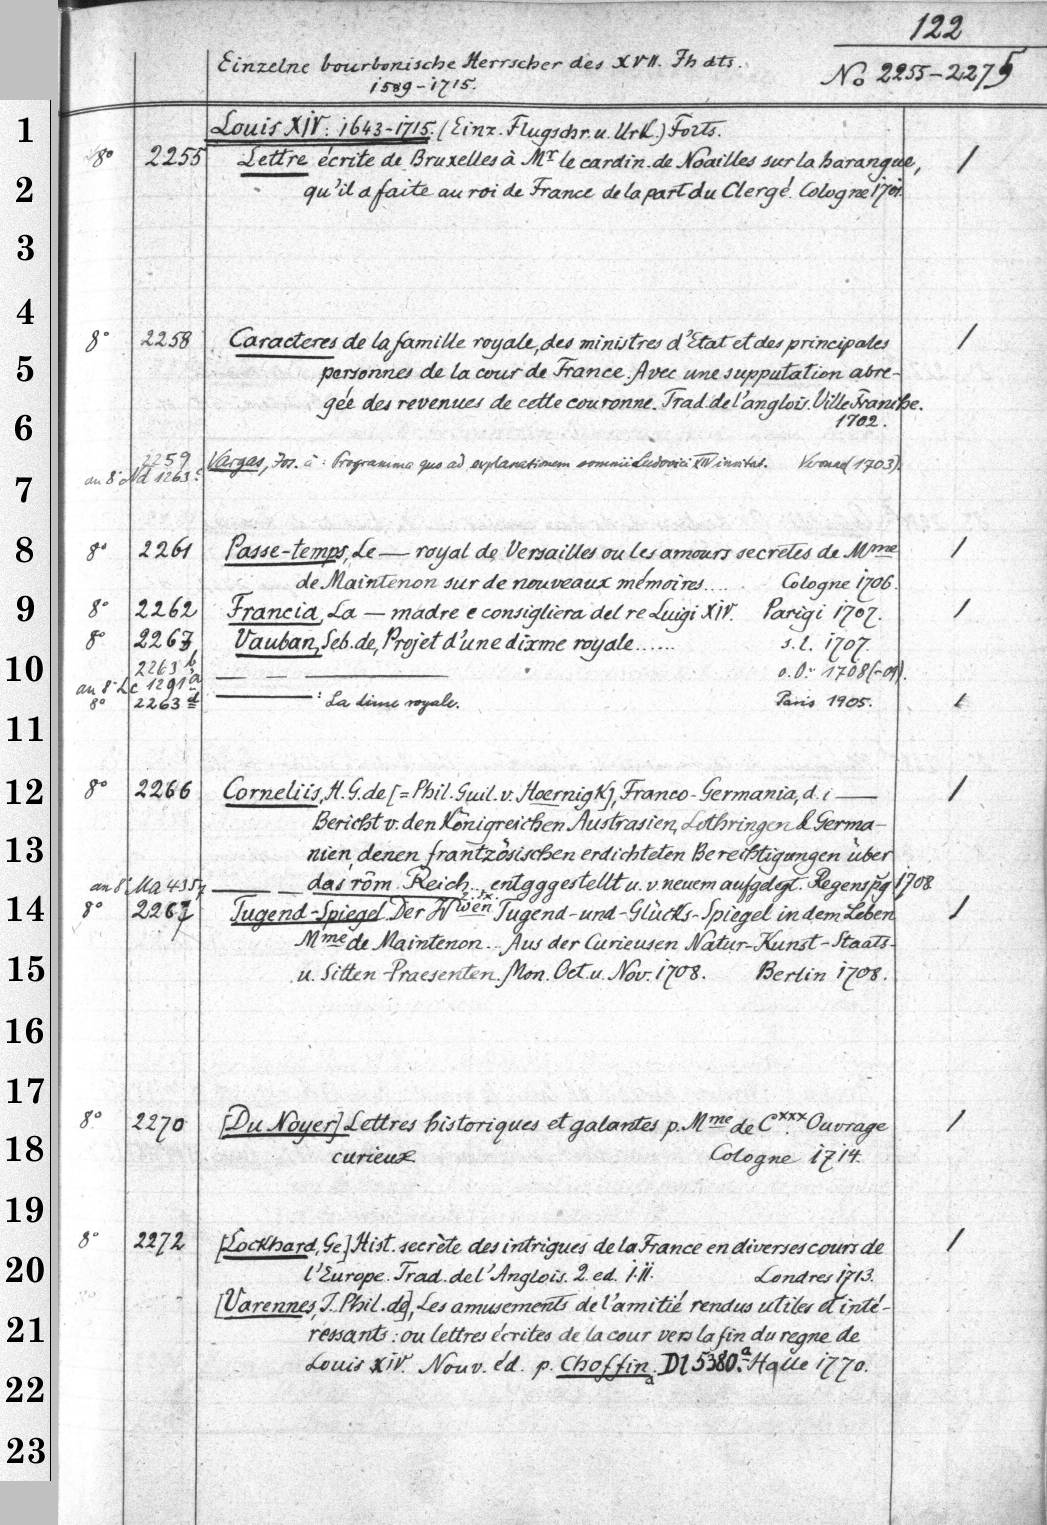 122
Einzelne bourbonische Herrscher des XVII. Jhdts.
No 2255-2275
1589-1715.
1
Louis XIV: 1643-1715. (Einz. Flugschr. u. Urk.) Forts.
8° 2255 Lettre écrite de Bruxelles à Mr le cardin. de Noailles sur la harangue, /
2
qu'il a faite au roi de France de la part du Clergé. Cologne 1701.
3
4
8° 2258 Caracteres de la famille royale, des ministres d'Etat et des principales /
5
personnes de la cour de France. Avec une supputation abre-
gée des revenues de cette couronne. Trad. de l'anglois. Ville Franche.
6
1702.
2259 Vargas, Jos. à: Programma quo ad explanationem somnii Ludovici XIV invitat. (1703).
an 8° Nd 1263
7
8
8° 2261 Passe-temps, Le — royal de Versailles ou les amours secretes de Mme /
de Maintenon sur de nouveaux mémoires.... Cologne 1706.
9
8° 2262 Francia, La — madre e consigliera del re Luigi XIV. Parigi 1707. /
8° 2263 Vauban, Seb. de, Projet d'une dixme royale...... s. l. 1707.
10
2263 b — — — o. O. 1708(-09).
an 8° Lc 1291 a
8° 2263 d —: La dime royale. Paris 1905. /
11
12
8° 2266 Corneliis, H. G. de [= Phil. Guil. v. Hoernigk], Franco-Germania, d. i — /
Bericht v. den Königreichen Austrasien, Lothringen & Germa-
13
nien, denen frantzösischen erdichteten Berechtigungen über
an 8° Ma 4357 — — das röm. Reich.., entgggestellt u. v. neuem aufgelegt. Regenspg 1708
14
8° 2267 Tugend-Spiegel. Der Wwen Tugend-und-Glücks-Spiegel in dem Leben /
Mme de Maintenon... Aus der Curieusen Natur-Kunst-Staats-
15
u. Sitten-Praesenten. Mon. Oct. u. Nov. 1708. Berlin 1708.
16
17
8° 2270 [Du Noyer] Lettres historiques et galantes p. Mme de Cxxx. Ouvrage /
18
curieux. Cologne 1714.
19
8° 2272 [Lockhard, Ge] Hist. secrète des intrigues de la France en diverses cours de /
20
l'Europe. Trad. de l'Anglois. 2. ed. I. II. Londres 1713.
[Varennes, J. Phil. de], Les amusements de l'amitié rendus utiles et inté-
21
ressants: ou lettres écrites de la cour vers la fin du regne de
Louis XIV. Nouv. éd. p. Choffin. Dl 5380.a Halle 1770.
22
23